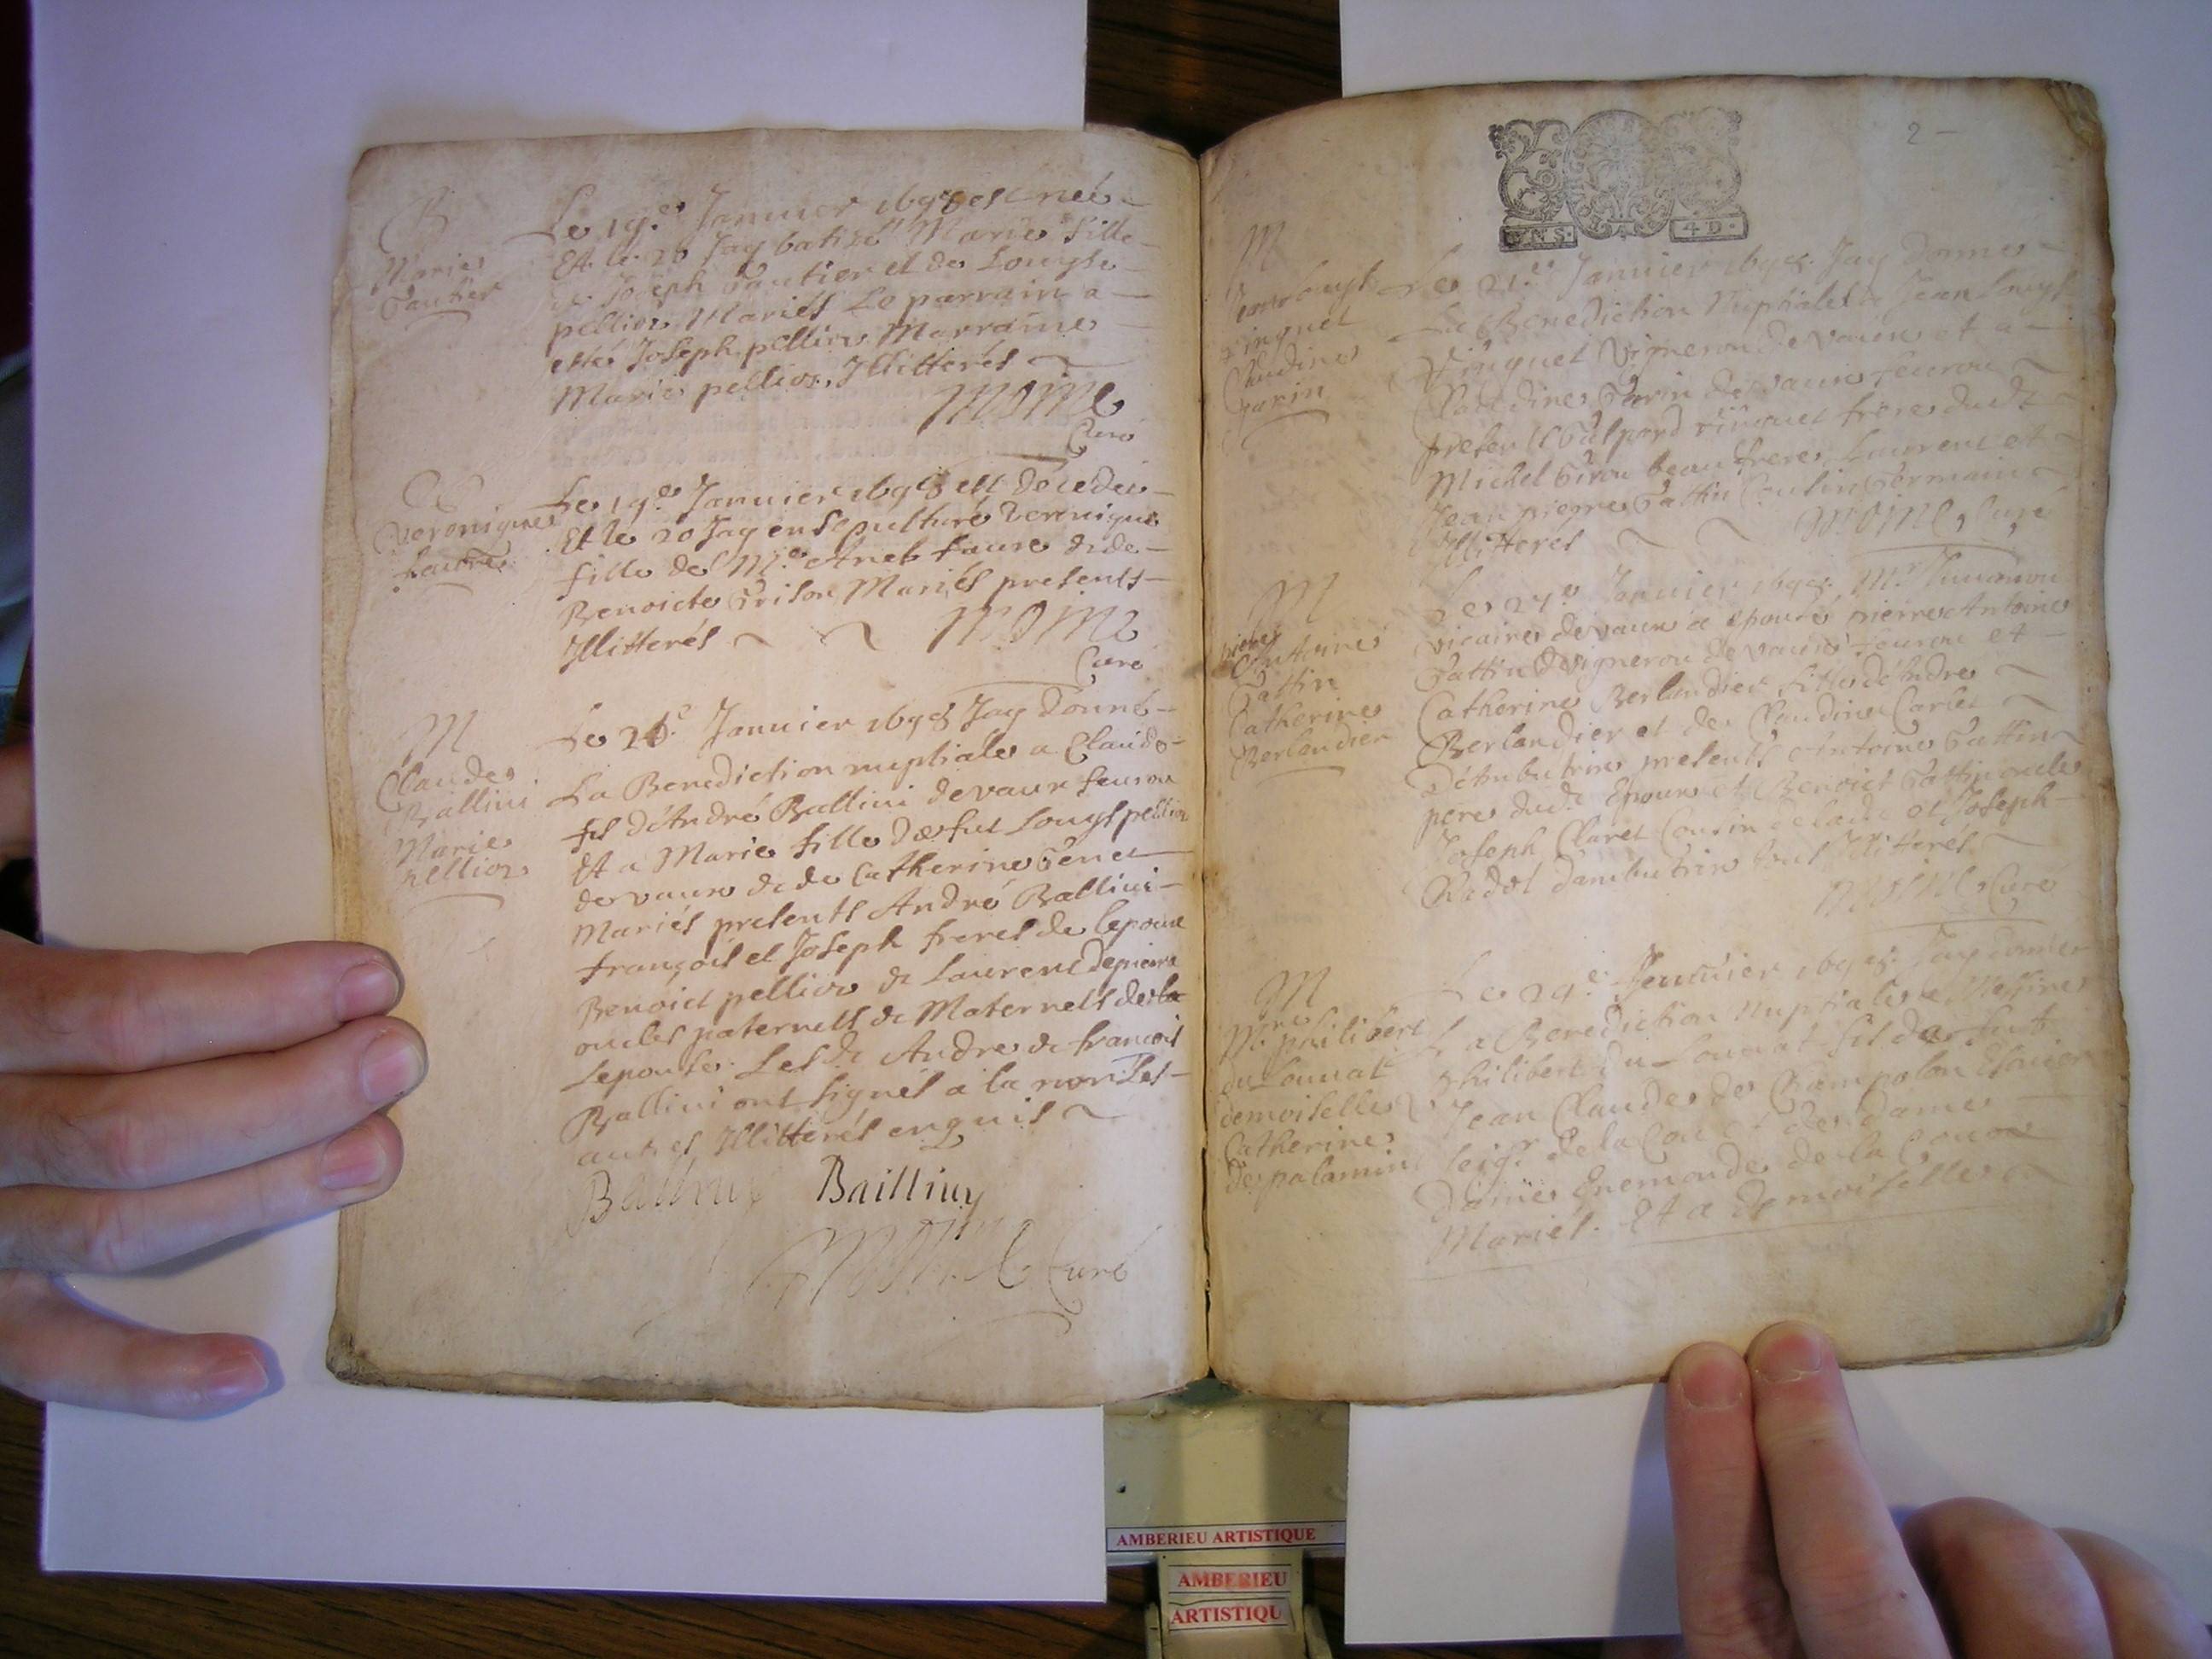 B
Marie
Gautier
Le 19.e Januier 1698 est neé
Et le 20 Jay batisé Marie fille
de Joseph Gautier et de Louyse
pellion Mariés Le parrain a
esté Joseph pellion Marraine
Marie pellion, Illitterés
Moine
Curé
Veronique
faure
Le 19.e Januier 1698 est decedeé
Et le 20 Jay ensepulturé Veronique
fille de M.e faure & de
Benoicte Grison Mariés presents
Illitterés
Moine
Curé
M
Claude
Ballini
Marie
pellion
Le Januier 1698 Jay donné
La Benediction nuptiale a Claude
fils d'André Ballini de vaux
Et a Marie fille de fut Louys pellion
de vaux & de Catherine Genet
Mariés presents André Ballini
françois et Joseph freres de lepoux
Benoict pellion & Laurent
oncles paternels & Maternels de la
lepouse. Les d. André & françois
Ballini ont signés a la non les
autres Illitterés enquis
Bailliny
Moine Curé
2
4D.
M
Jean Louys
Claudine
Garin
Le 21.e Januier 1698. Jay donné
La Benediction Nuptiale a Jean Louys
vigneron de vaux et a
Claudine Garin de vaux
presents Gaspard frere dud.
Michel Girou beau frere, Laurent et
Jean pierre Gattin Cousin Germain
Illitterés Moine, Curé
M
pierre
Antoine
Gattin
Catherine
Berlandier
Le 27.e Januier 1698. M.r
vicaire de vaux a epousé pierre Antoine
Gattin vigneron de vaux et
Catherine Berlandier fille d'Andre
Berlandier et de Claudine Carlet
D'Ambutrin presents Antoine Gattin
pere dud. Epoux et Benoict Gattin oncle
Joseph Claret Cousin et Joseph
d'ambutrin tous Illitterés
Moine Curé
M
philibert
du Louuat
demoiselle
Catherine
de palamin
Le 29.e Januier 1698.
La Benediction Nuptiale a Messire
Philibert du Louuat fils de fut
Jean Claude de Champolon Escuier
seig.r de la Cou et de dame
Enemonde de la
Mariés. Et a Demoiselle
AMBERIEU ARTISTIQUE
AMBERIEU
ARTISTIQU